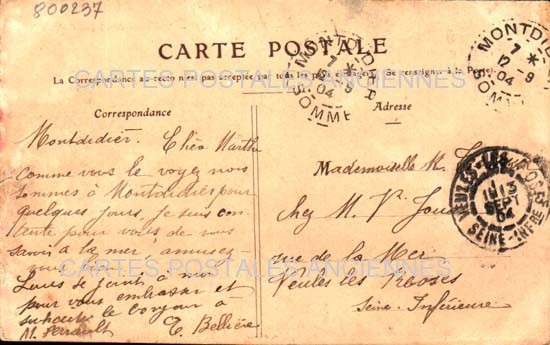 800237
CARTE POSTALE
La Correspondance au recto n'est pas acceptée par tous les pays étrangers. Se renseigner à la Poste
CARTES POSTALES ANCIENNES
MONTDIDIER
7
12-9
04
SOMME
MONTDI
7
12-9
04
SOMM
Correspondance
Adresse
Montdidier. Chère Marthe
Comme vous le voyez nous
sommes à Montdidier pour
quelques jours, je suis con-
tente pour vous de vous
savoir à la mer, amusez-
vous
Louis se joint à moi
pour vous embrasser et
souhaite le bonjour à
M. Perrault E. Bellière
Mademoiselle M.
chez M. Vr
rue de la Mer
Veules les Roses
Seine-Inférieure
VEULES-LES-ROSES
13
SEPT
04
SEINE-INFRE
CARTES POSTALES ANCIENNES